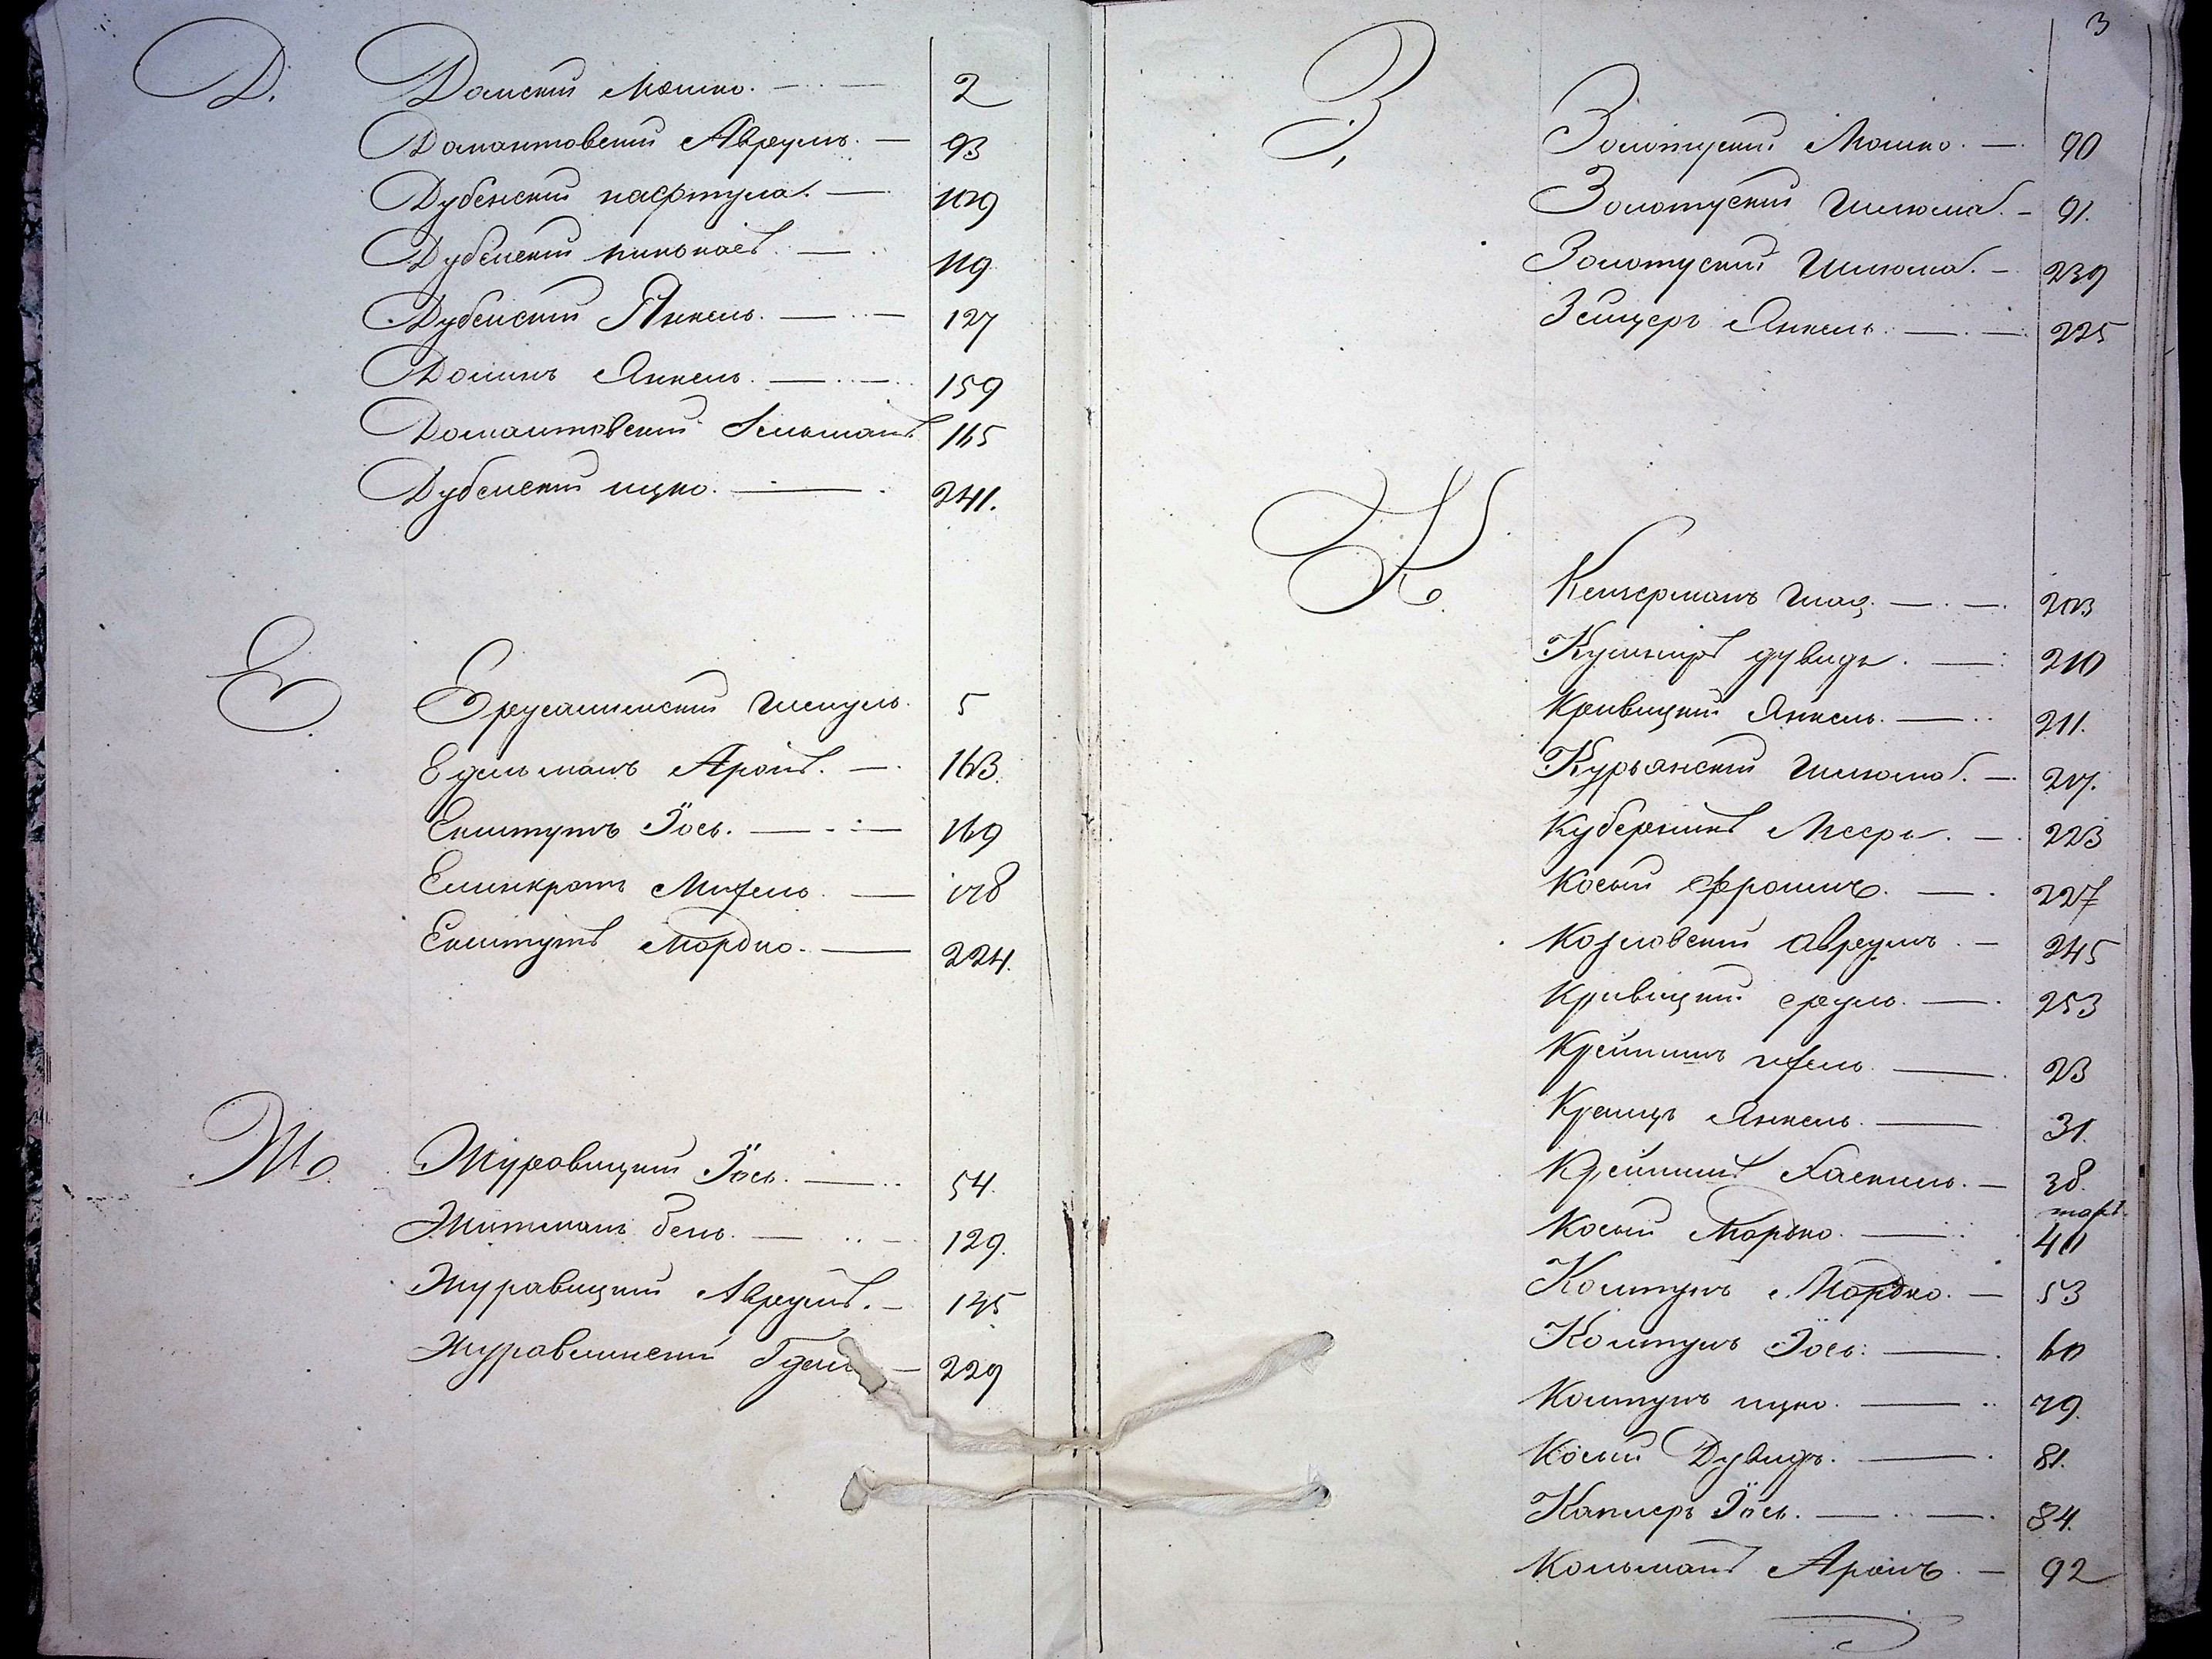 Д.
Дамский Мошко. 2
Домантовский Аврумъ. 93
Дубенский нафтула. 109
Дубенский 119
Дубенский Янкель. 127
Долинъ Янкель. 159
Домантовский Кельманъ 165
Дубенский ицко. 241.
Е.
Ерусалимский Шмуль. 5
Едельманъ Аронъ. 163.
Екштутъ Іось. 169
Михель. 178
Екштутъ Мордко. 224.
Ж.
Журавицкий Іось. 54.
Житманъ бень. 129.
Журавицкий Аврумъ. 145
Журавлинский 229
3
З.
Золотуский Мошко. 90
Золотуский Шлюома. 91.
Золотуский Шлюома. 239
Зейцеръ Янкель. 225
К.
Кензерманъ Шая. 203
Кушниръ дувидъ. 210
Кривицкий Янкель. 211.
Курьянский Шлюома. 217.
Куберникъ Мееръ. 223
Косый Фроимъ. 227
Козловский Аврумъ. 245
Кривицкий сруль. 253
Крейнинъ хехель. 23
Кренцъ Янкель. 31.
Крейнинъ Хаскиль. 38.
Косый Мордко. 40
Колтунъ Мордко. 53
Колтунъ Іось. 60
Колтунъ ицко. 79.
Косый Дувидъ. 81.
Каплеръ Іось. 84.
Кольманъ Аронъ. 92